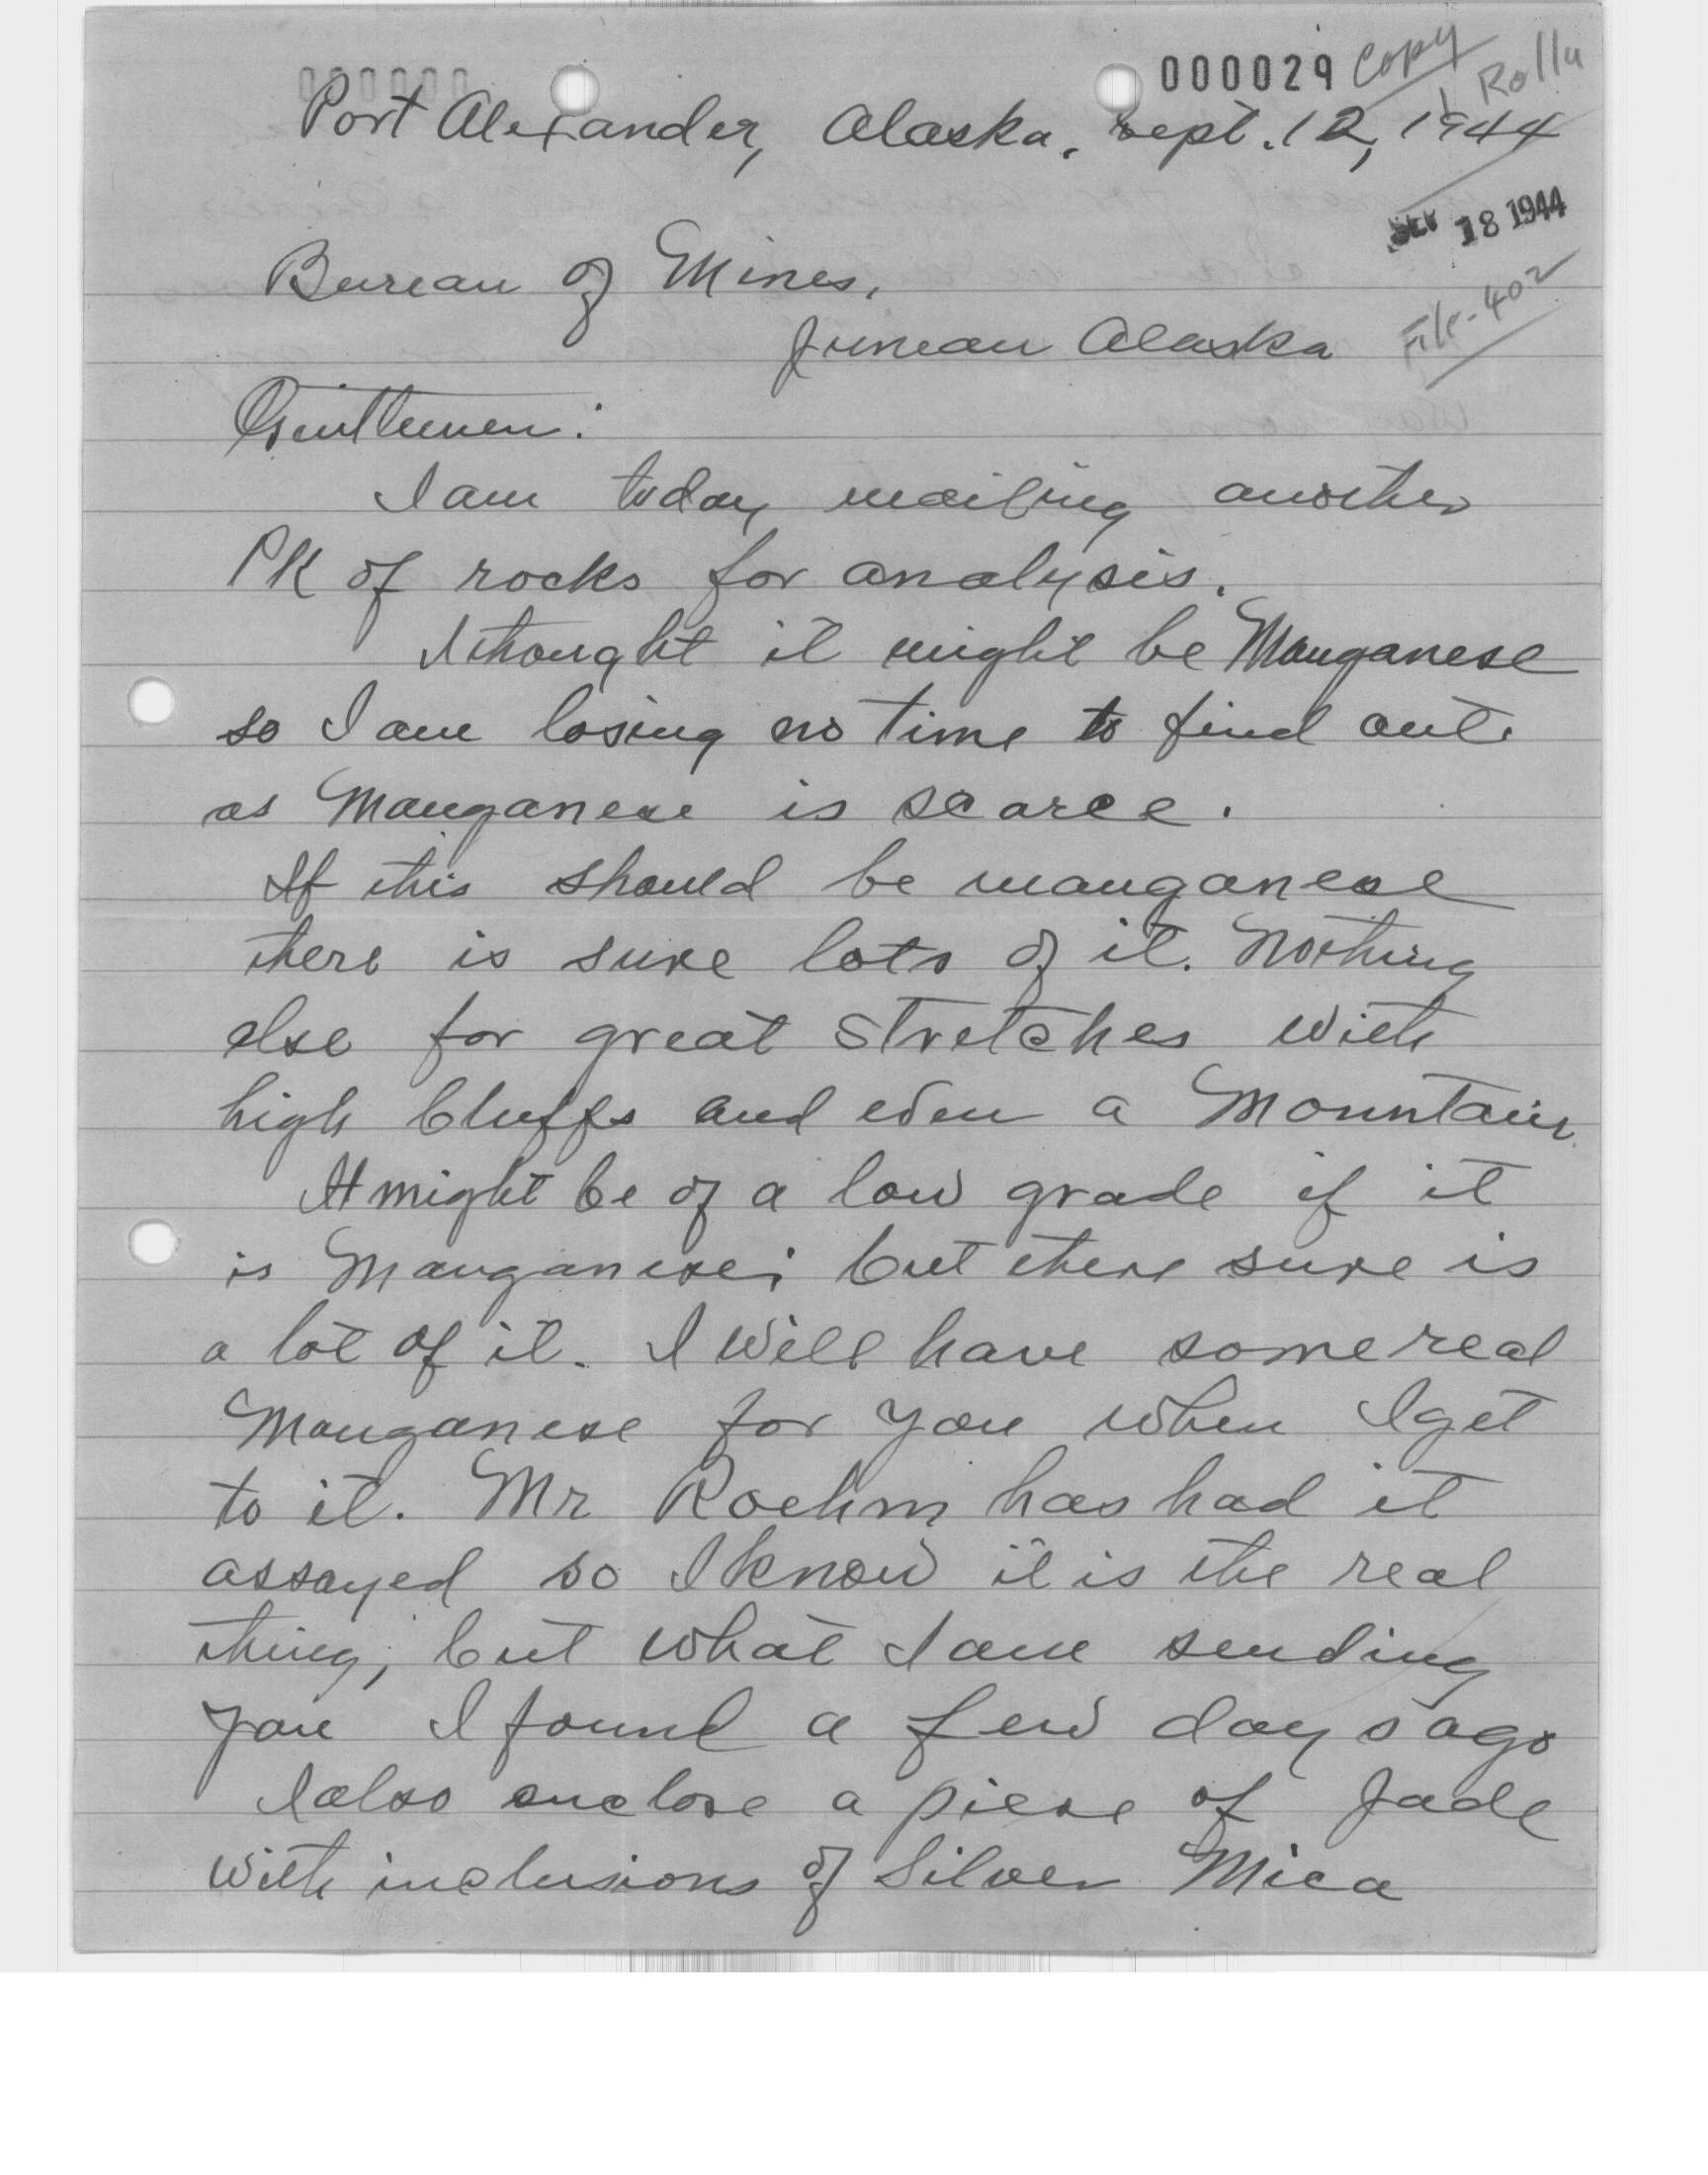 000029 Copy
Rolla
Port Alexander, Alaska, Sept. 12, 1944
18 1944
Bureau of Mines,
File-402
Juneau Alaska
Gentlemen:
I am today mailing another
PK of rocks for analysis.
I thought it might be Manganese
so I am losing no time to find out
as Manganese is scarce.
If this should be manganese
there is sure lots of it. Nothing
else for great stretches with
high bluffs and even a Mountain.
It might be of a low grade if it
is Manganese; but there sure is
a lot of it. I will have some real
Manganese for you when I get
to it. Mr Roehm has had it
assayed so I know it is the real
thing, but what I am sending
you I found a few days ago
I also enclose a piece of Jade
with inclusions of Silver Mica